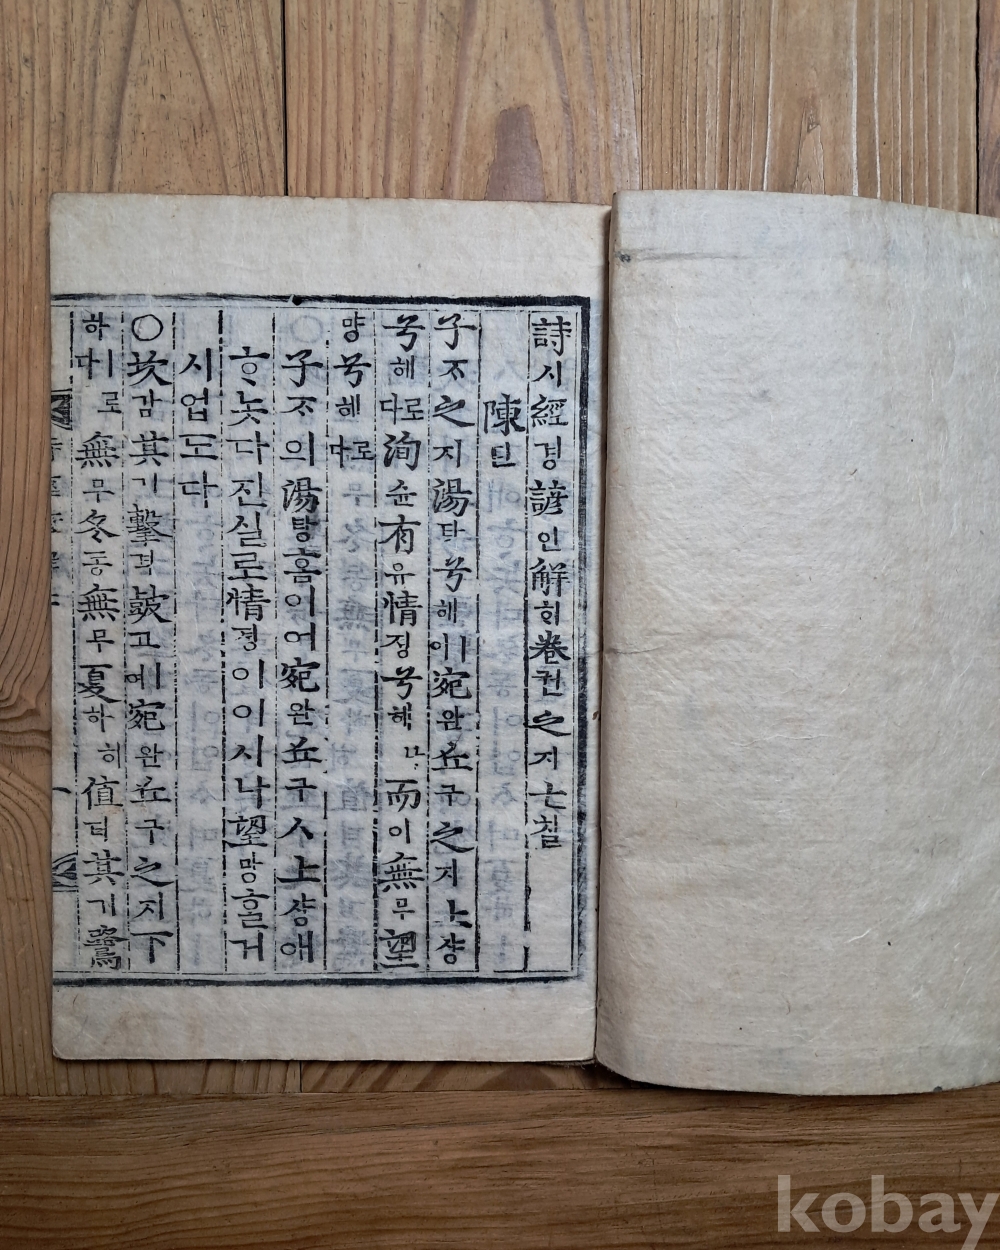 詩시經경諺언解ᄒᆡ卷권之지七칠
陳딘
子ᄌᆞ之지湯탕兮혜ㅣ여宛완丘구之지上샹
兮혜로다洵슌有유情졍兮혜나而이無무望
망兮혜로다
子ᄌᆞ의湯탕홈이여宛완丘구ㅅ上샹애
ᄒᆞ놋다진실로情졍이이시나望망ᄒᆞᆯ거
시업도다
○坎감其기擊격鼓고ㅣ여宛완丘구之지下
하ㅣ로다無무冬동無무夏하히値티其기鷺
kobay